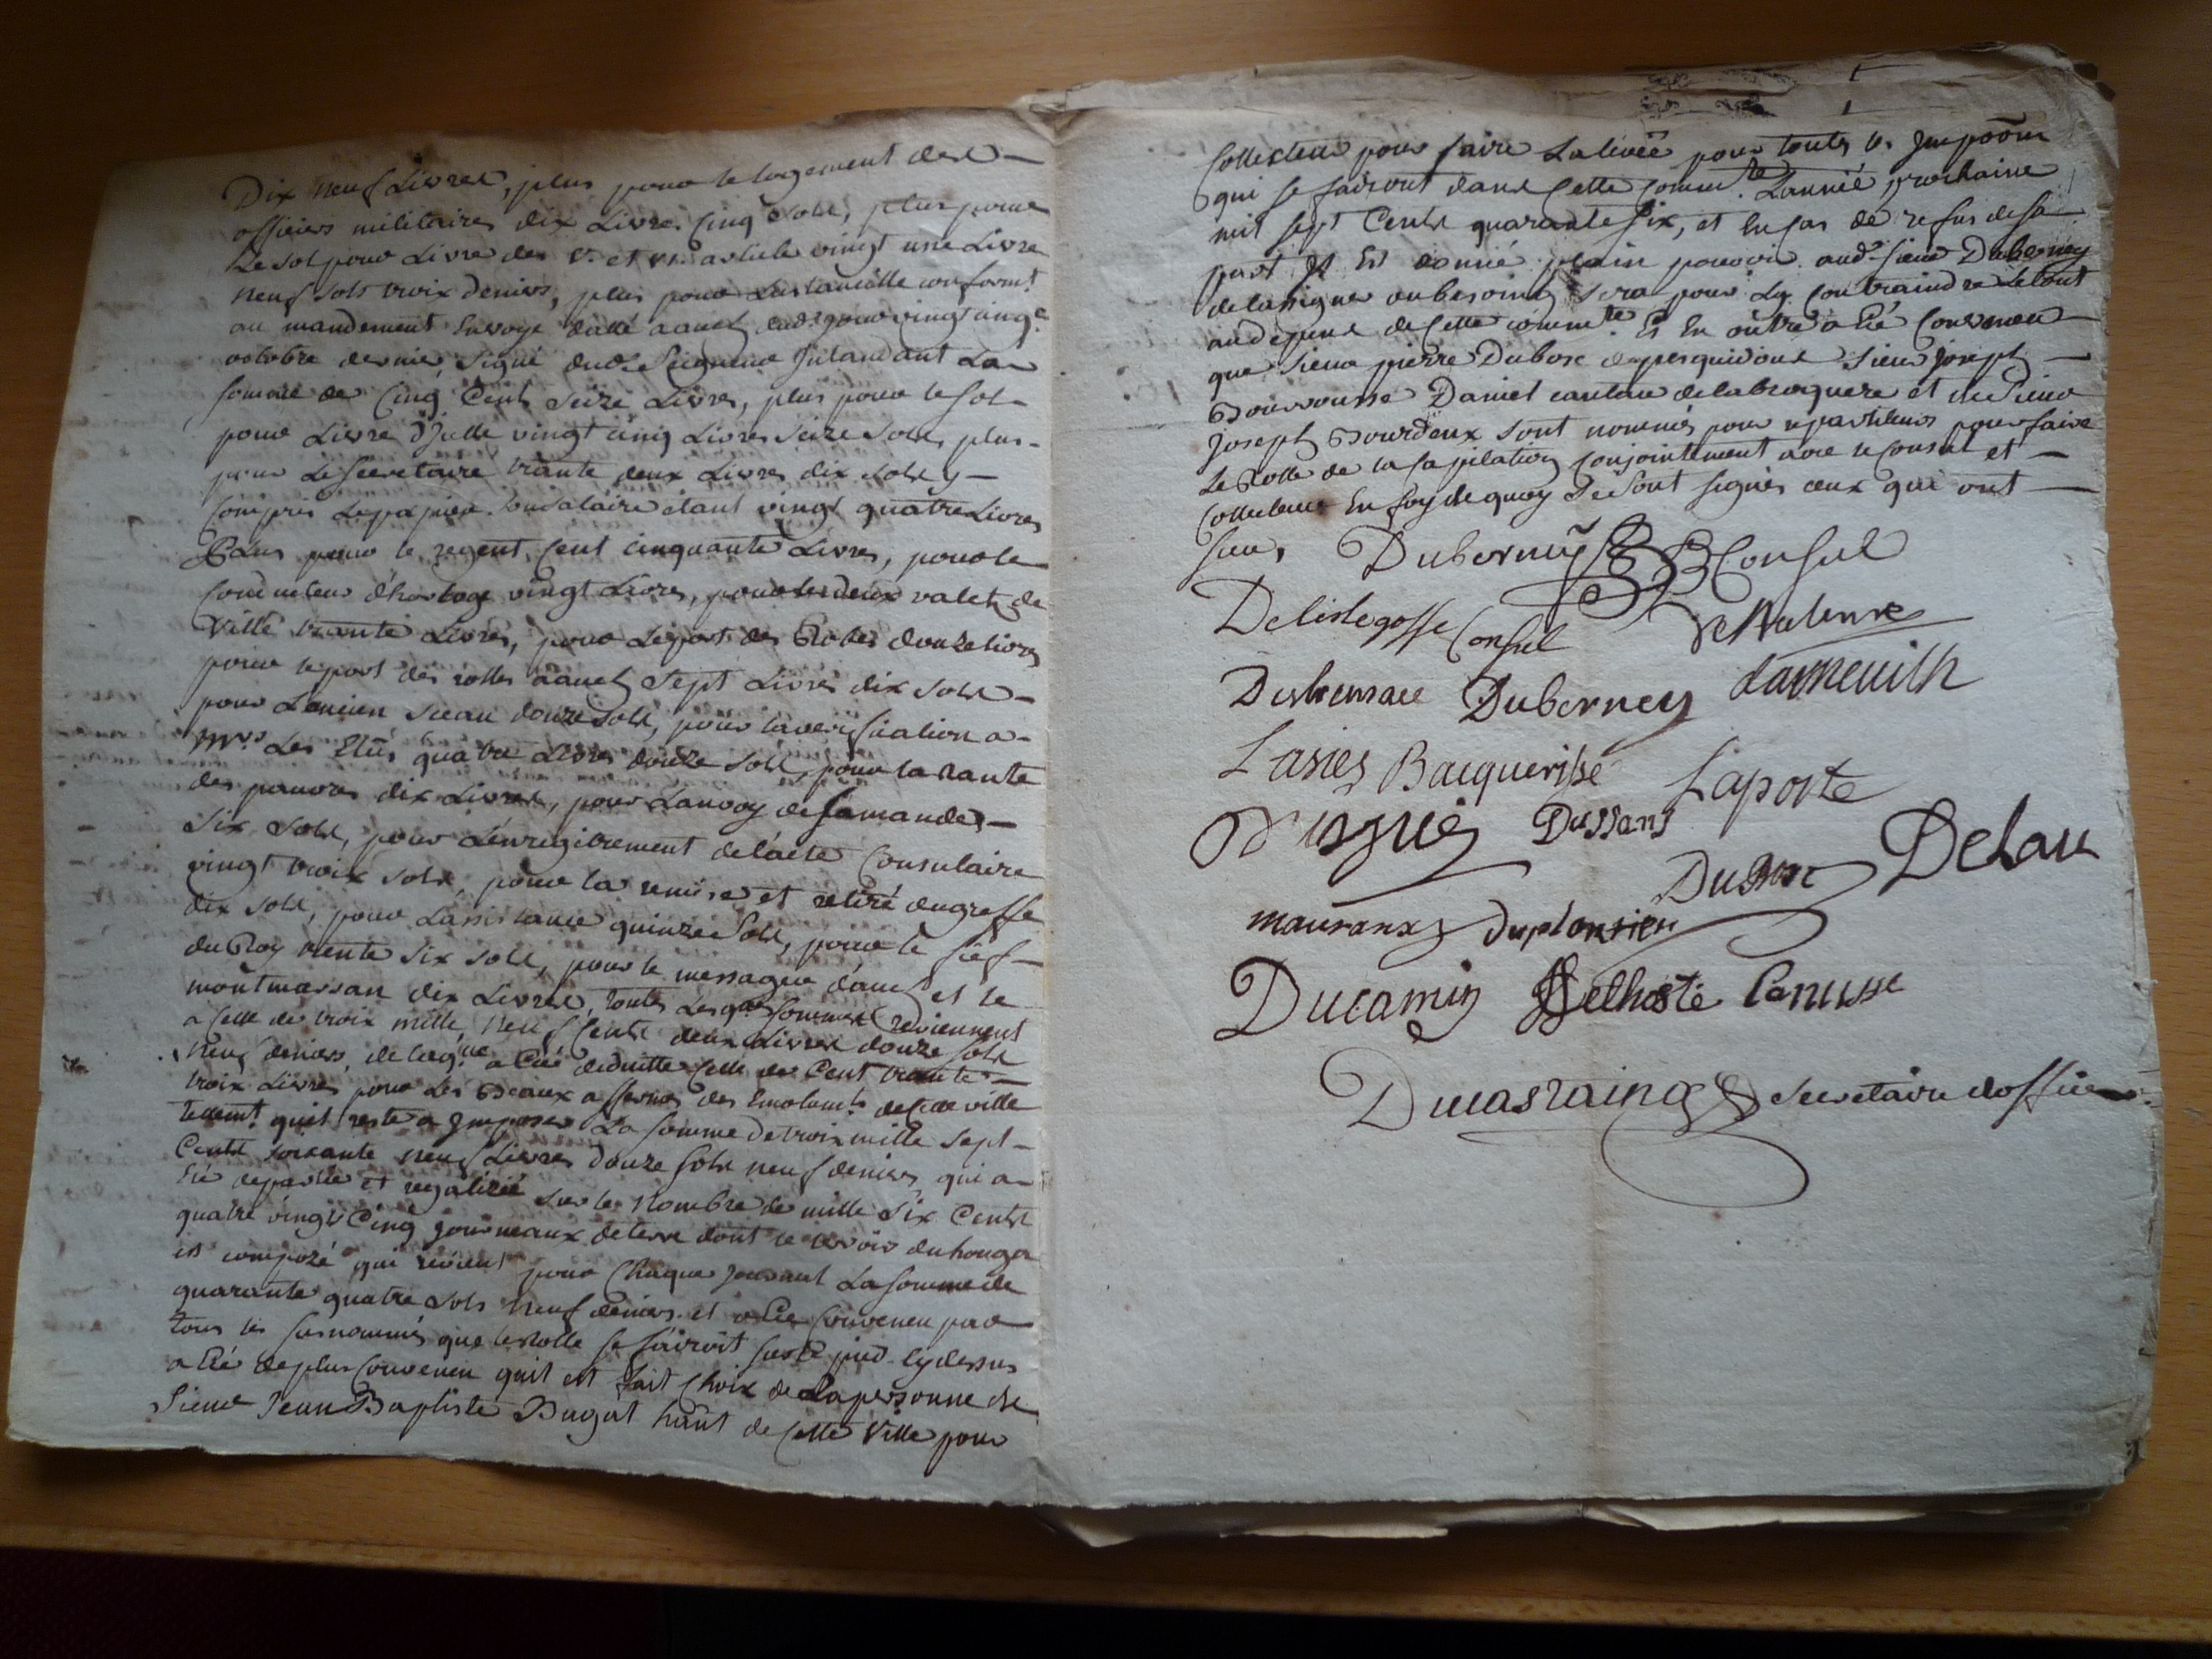 Dix neuf Livres, plus pour le logement des
officiers militaires dix Livres Cinq Sols, plus pour
Le sol pour Livre des V. et VI. article vingt une Livre
neuf sols trois deniers, plus pour conform.t
au mandement Envoyé datté d'auch du vingt cinq
octobre dernier, signé dud. Seigneur Intandant La
somme de Cinq Cents Seize Livres, plus pour le sol
pour Livre d'Jcelle vingt cinq Livres Seize Sols, plus
pour Le Secretaire trante deux Livres dix sols y
Compris Le papier Son Salaire étant vingt quatre Livres
Plus pour le regent Cent cinquante Livres, pour le
Conducteur d'horloge vingt Livres, pour les deux valets de
Ville trante Livres, pour Le port des Robes douze Livres
pour le port des rolles d'auch Sept Livres dix sols
pour L'ancien Sceau douze sols, pour la verification a
Mrs. Les Elus quatre Livres douze sols, pour la rante
des pauvres dix Livres, pour L'anvoy de la mande
six sols, pour L'enregitrement de l'acte Consulaire
vingt trois sols, pour la remise et retiré du greffe
dix sols, pour L'assistance quinze Sols, pour le fief
du Roy trente six sols, pour le messager d'auch et le
montmarsan dix Livres, toutes Lesq.es sommes reviennent
a Celle de trois mille, neuf Cents deux Livres douze sols
neuf deniers, de laq.lle a Eté deduitte Celle de Cent trante
trois Livres pour Les Beaux a fermes des Emolum.ts de Cette ville
tellem.t qu'il reste a Jmposer La somme de trois mille sept
Cents soixante neuf Livres douze sols neuf deniers qui a
Eté departie et regalizée sur le Nombre de mille Six Cents
quatre vingt Cinq Journeaux de terre dont le terroir du houga
est composé qui revient pour Chaque Journal La somme de
quarante quatre sols neuf deniers et a Eté Convenu par
tous les susnommés que le Rolle se fairoit sur le pied Cy dessus
a Eté de plus Convenu qu'il est fait Choix de La personne de
Sieur Jean Baptiste Bugat haût de Cette Ville pour
Collecteur pour faire La levée pour toutes les Jmpoõns
qui se fairont dans Cette Comm.te L'année prochaine
mil sept Cents quarante Six, et En cas de refus de sa
part Il Est donné plain pouvoir aud. Sieur Duberney
de l'assigner au besoing sera pour L'y Contraindre Le tout
aud depens de Cette comm.te Et En outre a Eté Convenu
que Sieur pierre Dubosc Sieur Joseph
Bourrousse Daniel de labroquere et Sieur
Joseph Bourdeux sont nommés pour repartiteurs pour faire
Le Rolle de la Capitation Conjointement avec le Consul et
Collecteur En foy de quoy Se sont signés ceux qui ont
sceu,
Duberney Consul
Delislegosse Consul
Duberney Lameuilh
Lasies Bacquerisse Laporte
Dussans
Dubosc Delau
mauranx Duplantier
Ducamin Delhoste Canusse
Ducasraing Secretaire d'office